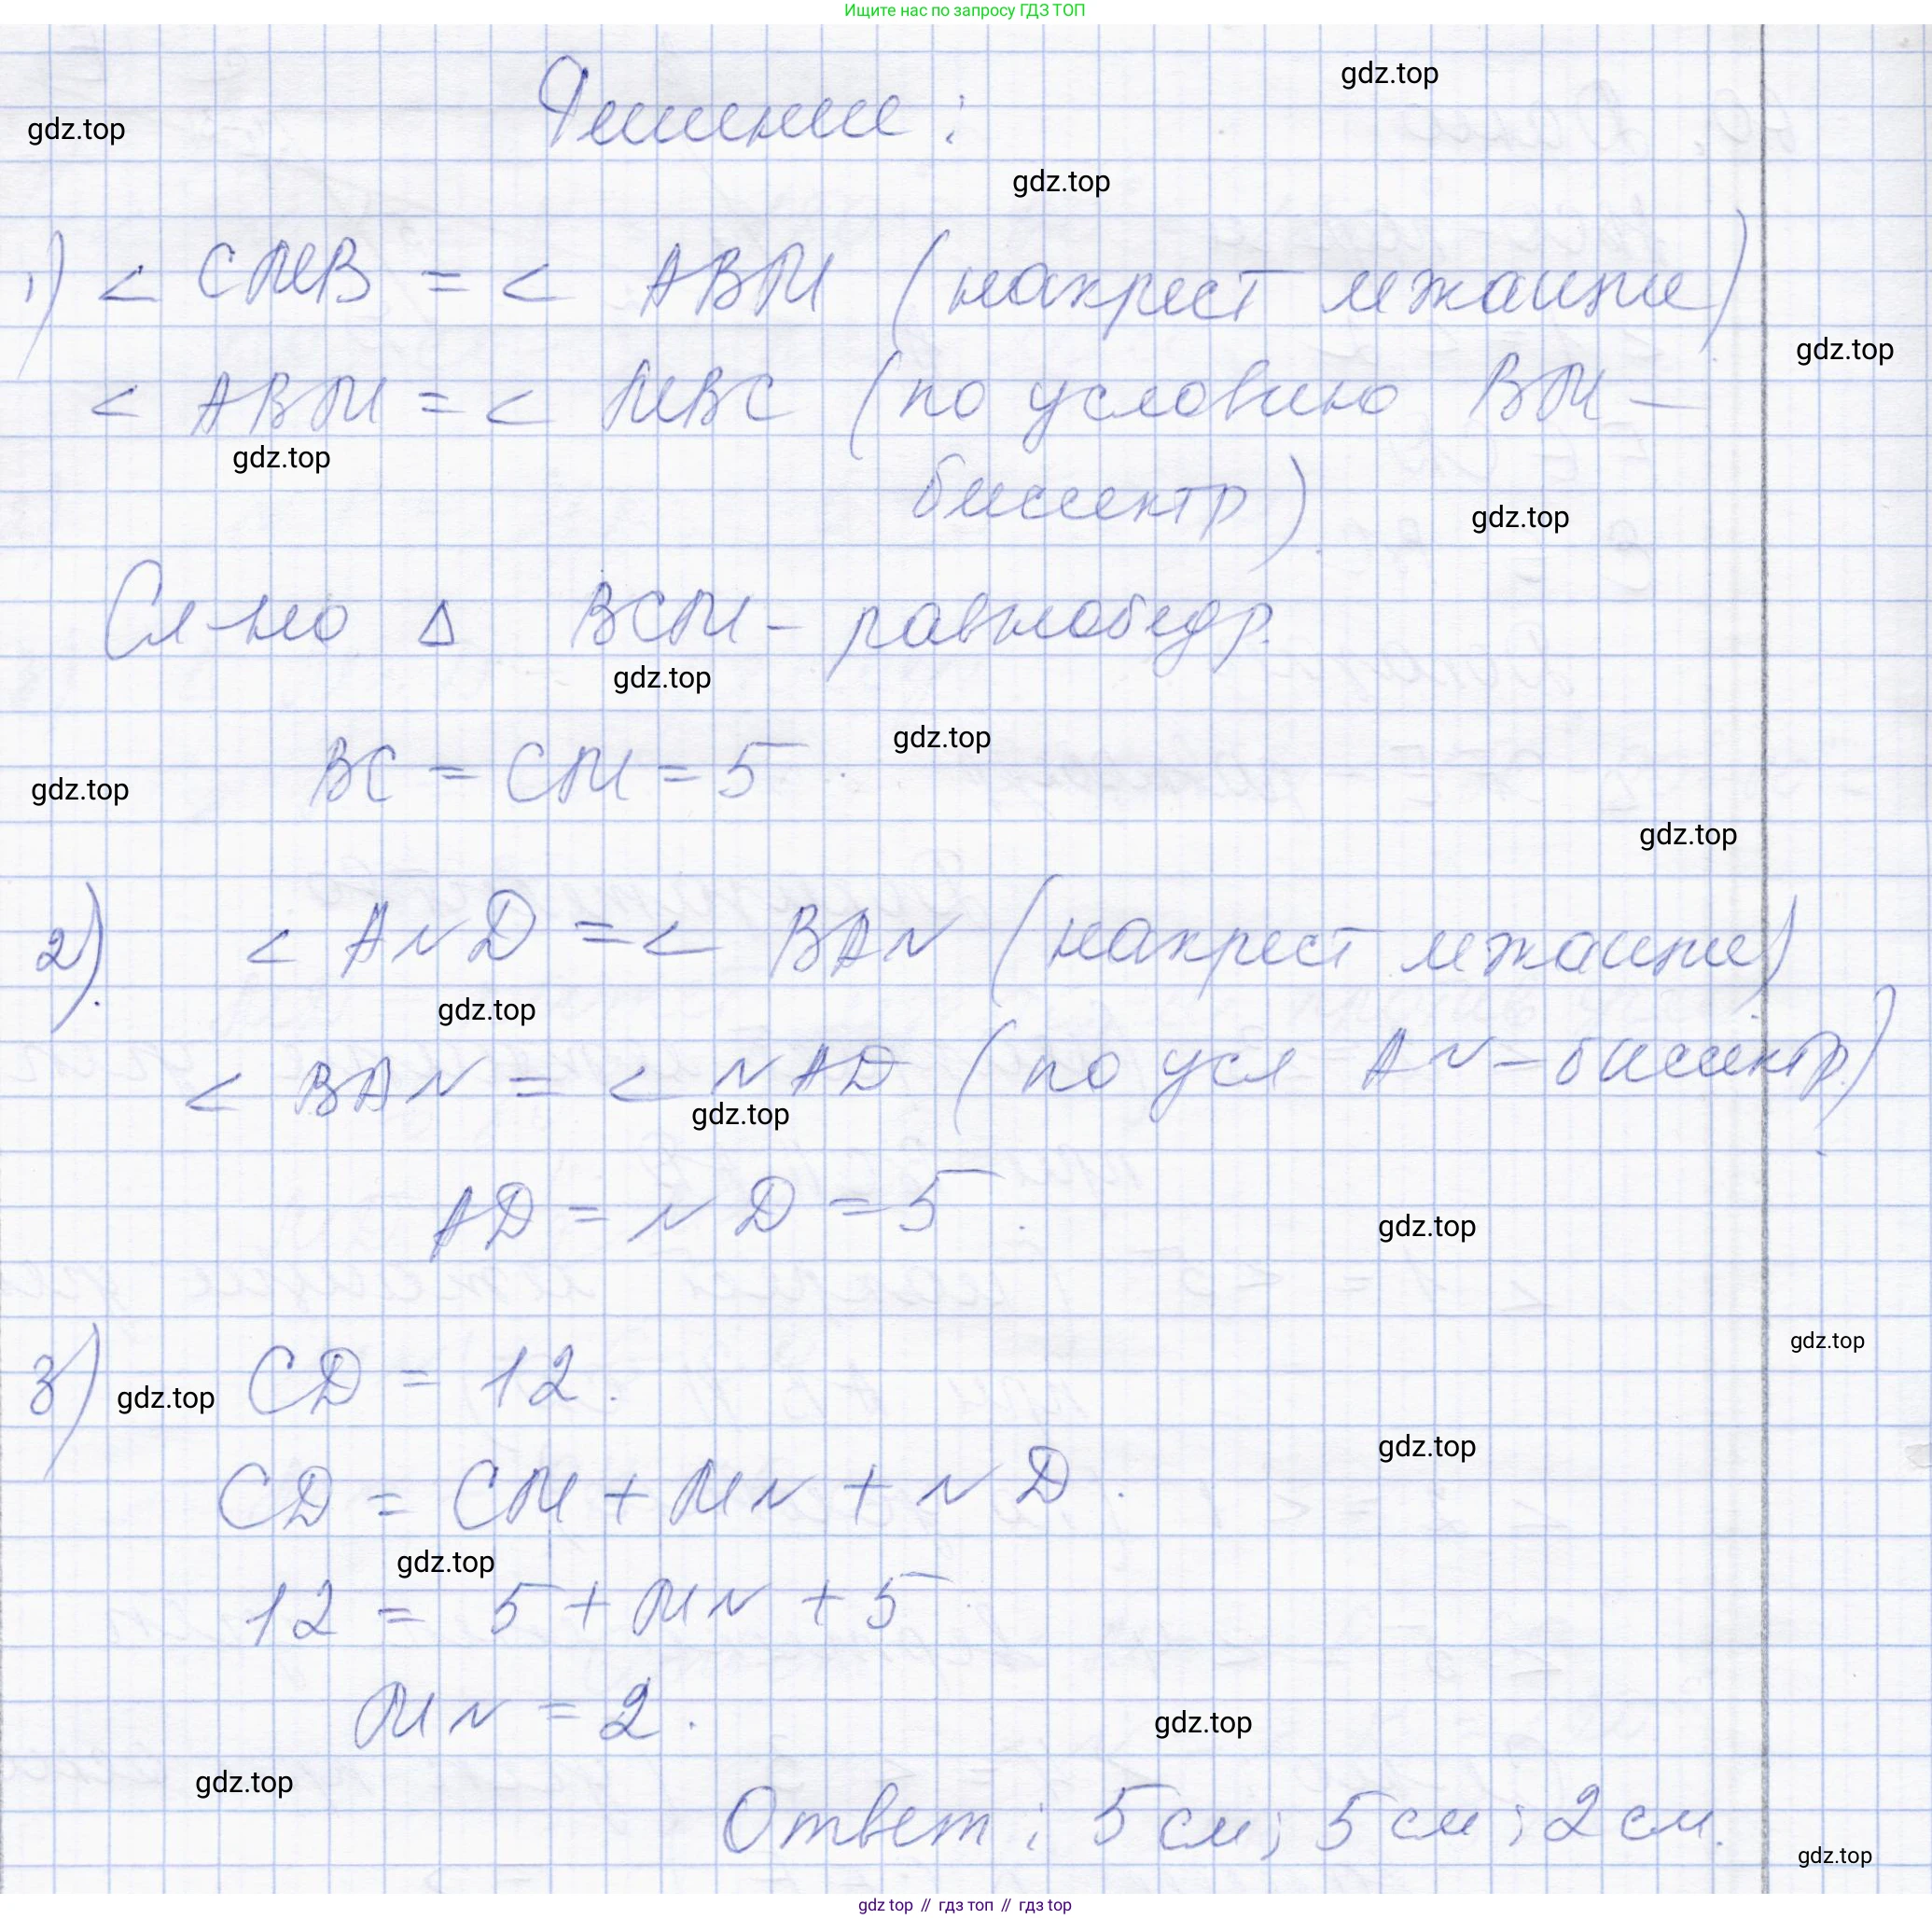 Ищите нас по запросу ГДЗ ТОП
gdz.top
Решение:
gdz.top
gdz.top
1) < CMB = < ABM (накрест лжащие)
gdz.top
< ABM = < MBC (по условию BM –
gdz.top
биссектр).
gdz.top
Сл-но Δ BCM – равнобедр.
gdz.top
gdz.top
BC = CM = 5.
gdz.top
gdz.top
2). < AND = < BAN (накрест лжащие)
gdz.top
< BAN = < NAD (по усл AN – биссектр.)
gdz.top
AD = ND = 5.
gdz.top
gdz.top
3) CD = 12.
gdz.top
gdz.top
CD = CM + MN + ND.
gdz.top
12 = 5 + MN + 5.
MN = 2.
gdz.top
gdz.top
Ответ: 5 см; 5 см; 2 см.
gdz.top
gdz top // гдз топ // гдз top